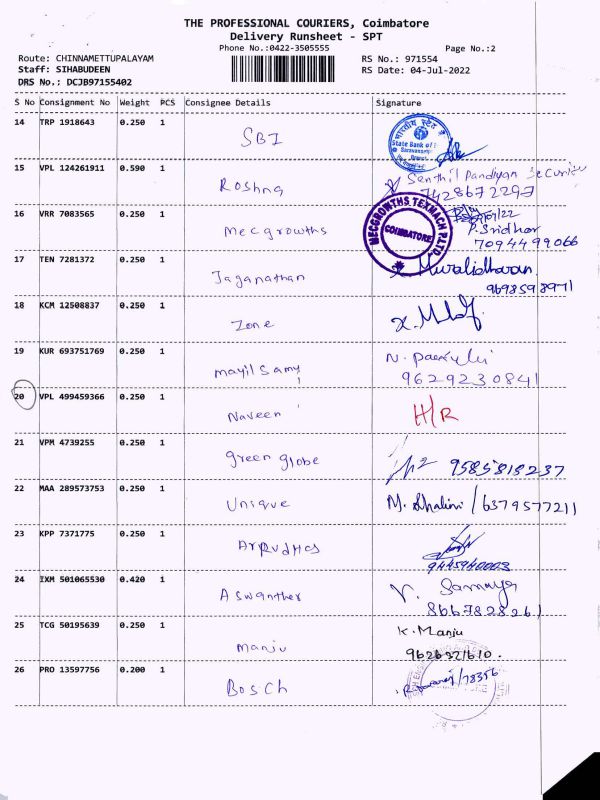 THE PROFESSIONAL COURIERS, Coimbatore
Delivery Runsheet - SPT
Phone No.:0422-3505555
Page No.:2
Route: CHINNAMETTUPALAYAM
RS No.: 971554
Staff: SIHABUDEEN
RS Date: 04-Jul-2022
DRS No.: DCJB97155402
S No Consignment No Weight PCS Consignee Details Signature
14 TRP 1918643 0.250 1 SBI
State Bank of
Branch
15 VPL 124261911 0.590 1 Roshna Senthil Pandiyan Security
7428672297
16 VRR 7083565 0.250 1 Mecgrowths P.Sridhar
7094499066
MECGROWTHS TEXMACH P.LTD.
COIMBATORE
17 TEN 7281372 0.250 1 Jaganathan Muralidharan
9698598971
18 KCM 12508837 0.250 1 Zone
19 KUR 693751769 0.250 1 mayilSamy
9629230841
20 VPL 499459366 0.250 1 Naveen H/R
21 VPM 4739255 0.250 1 green globe 9585818237
22 MAA 289573753 0.250 1 Unique M. Shalini / 6379577211
23 KPP 7371775 0.250 1
9445940003
24 IXM 501065530 0.420 1 Aswanther
8667828261
25 TCG 50195639 0.250 1 manju K. Manju
26 PRO 13597756 0.200 1 Bosch /78356